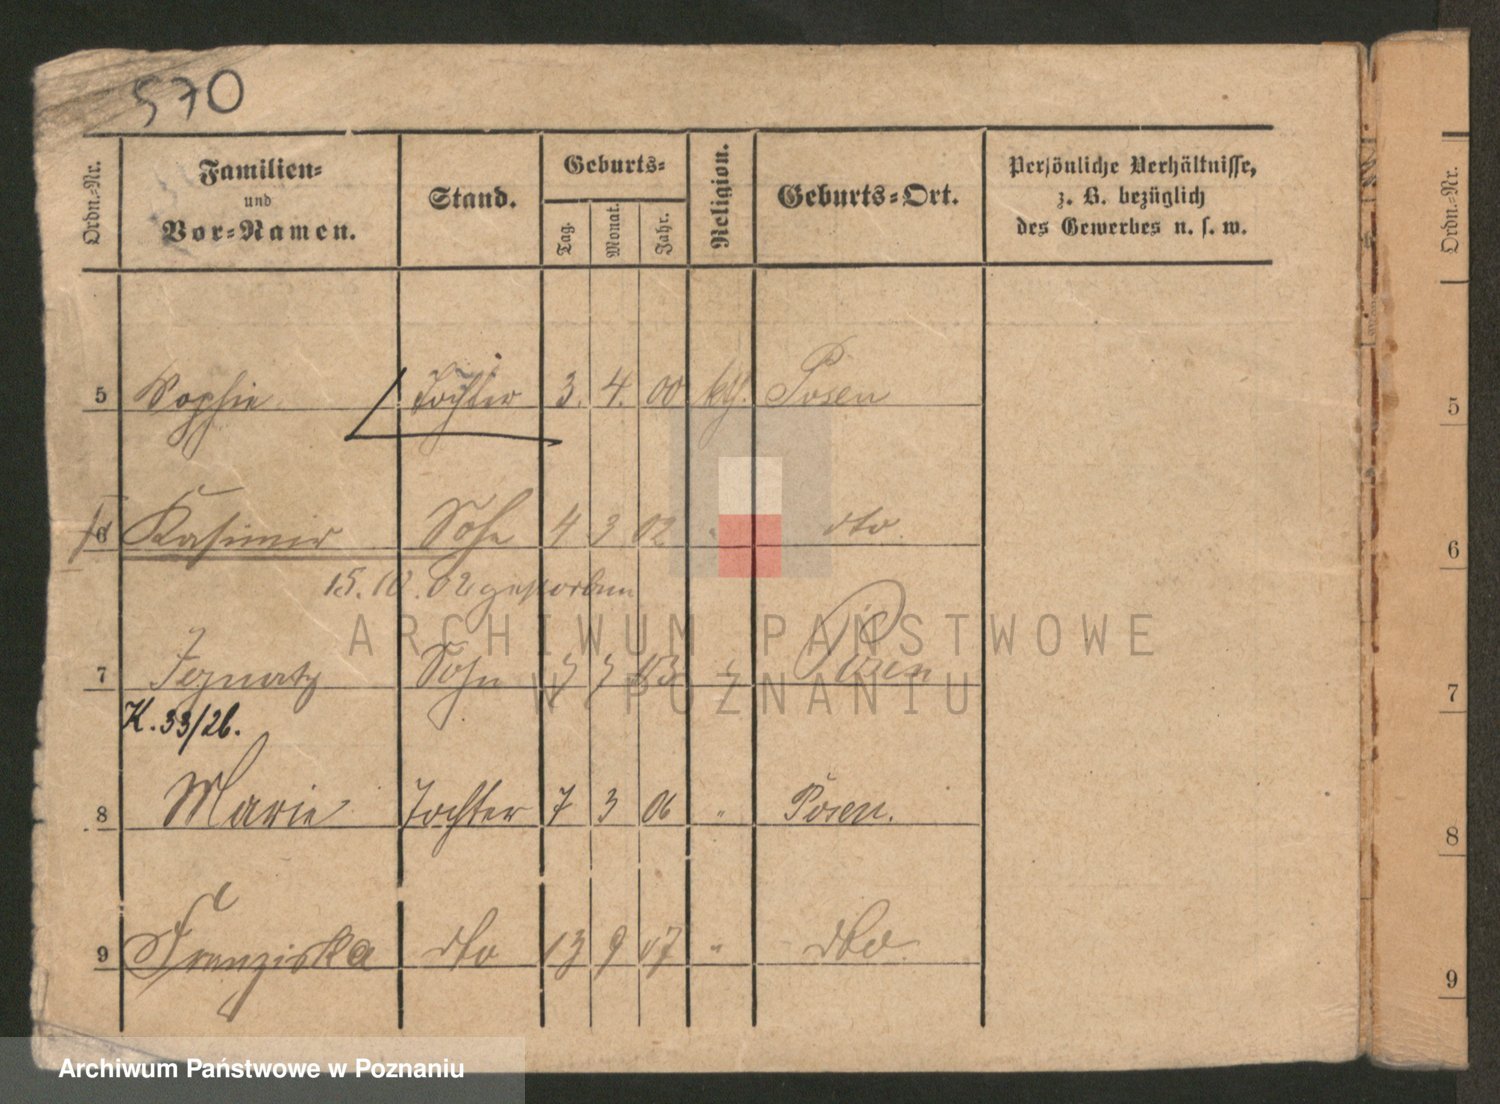 570
Ordn.-Nr. Familien- und Vor-Namen. Stand. Geburts- Tag. Monat. Jahr. Religion. Geburts-Ort. Persönliche Verhältnisse, z. B. bezüglich des Gewerbes u. s. w.
5 Sophie Tochter 3. 4. 00 kth. Posen
6 Kasimir Sohn 4 3 02 " dto.
15. 10. 02 gestorben
7 Ignatz Sohn 03 " Posen
K. 33/26.
8 Marie Tochter 7 3 06 " Posen.
9 Franziska dto 13 9 07 " dto.
Ordn.-Nr.
5
6
7
8
9
ARCHIWUM PAŃSTWOWE
W POZNANIU
Archiwum Państwowe w Poznaniu